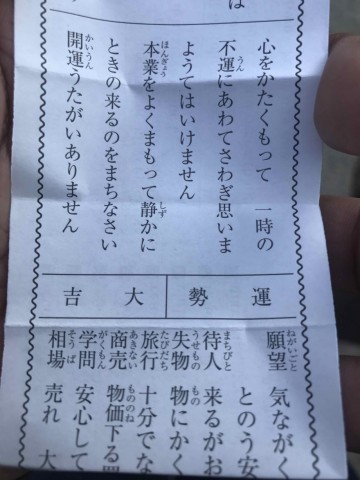 は
心をかたくもって 一時の
不運にあわてさわぎ思いま
ようてはいけません
本業をよくまもって静かに
ときの来るのをまちなさい
開運うたがいありません
運勢
大吉
願望 気ながく
とのう安
待人 来るがお
失物 物にかく
旅行 十分でな
商売 物価下る
学問 安心して
相場 売れ 大